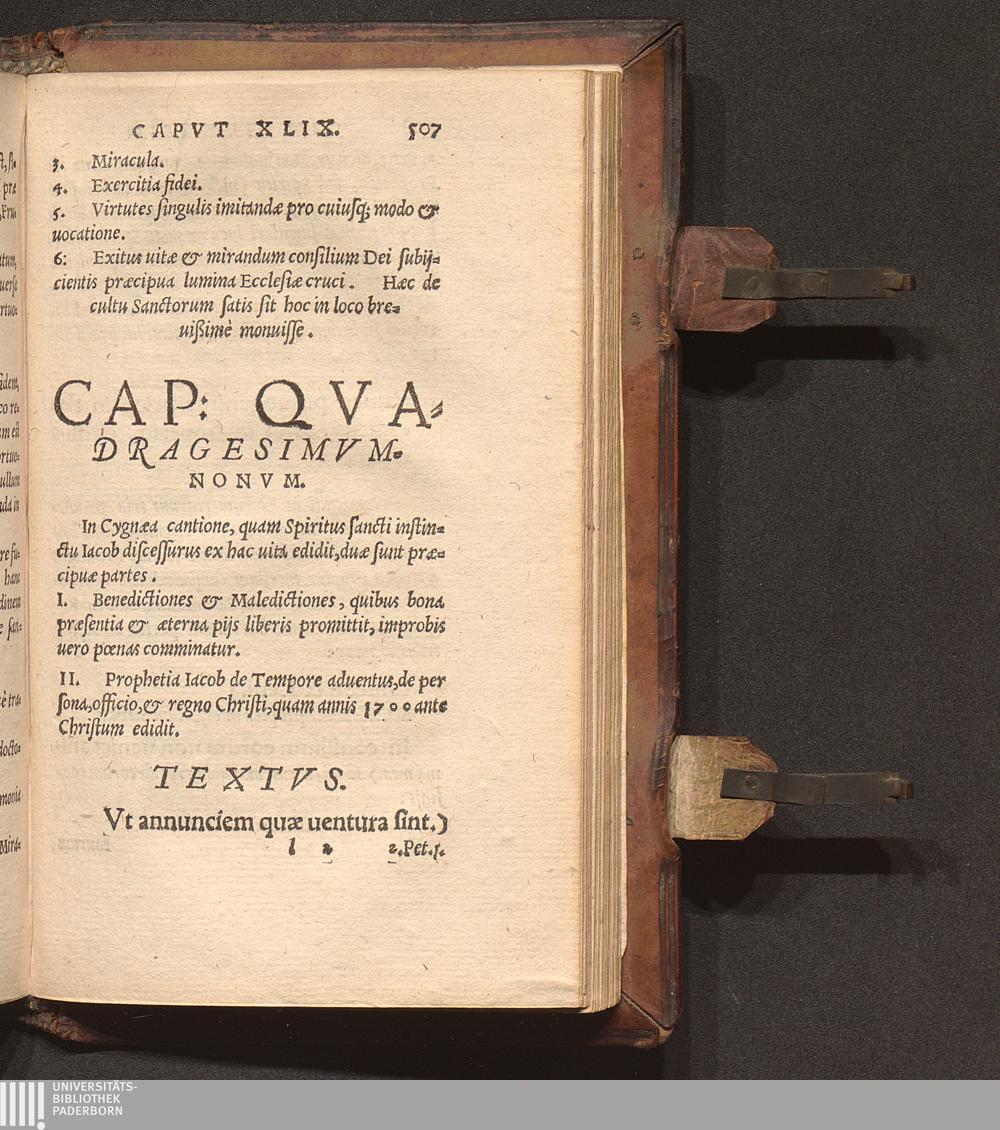 CAPVT XLIX. 507
3. Miracula.
4. Exercitia fidei.
5. Virtutes ſingulis imitandæ pro cuiuſq; modo &
uocatione.
6: Exitus uitæ & mirandum conſilium Dei ſubij⸗
cientis præcipua lumina Eccleſiæ cruci. Hæc de
cultu Sanctorum ſatis ſit hoc in loco bre⸗
uißimè monuiſſe.
CAP: QVA⸗
DRAGESIMVM⸗
NONVM.
In Cygnæa cantione, quam Spiritus ſancti inſtin⸗
ctu Iacob diſceſſurus ex hac uita edidit, duæ ſunt præ⸗
cipuæ partes.
I. Benedictiones & Maledictiones, quibus bona
præſentia & æterna pijs liberis promittit, improbis
uero pœnas comminatur.
II. Prophetia Iacob de Tempore aduentus, de per
ſona, officio, & regno Chriſti, quam annis 1700 ante
Chriſtum edidit.
TEXTVS.
Vt annunciem quæ uentura ſint.)
l 2 2. Pet. 1.
UNIVERSITÄTS-
BIBLIOTHEK
PADERBORN